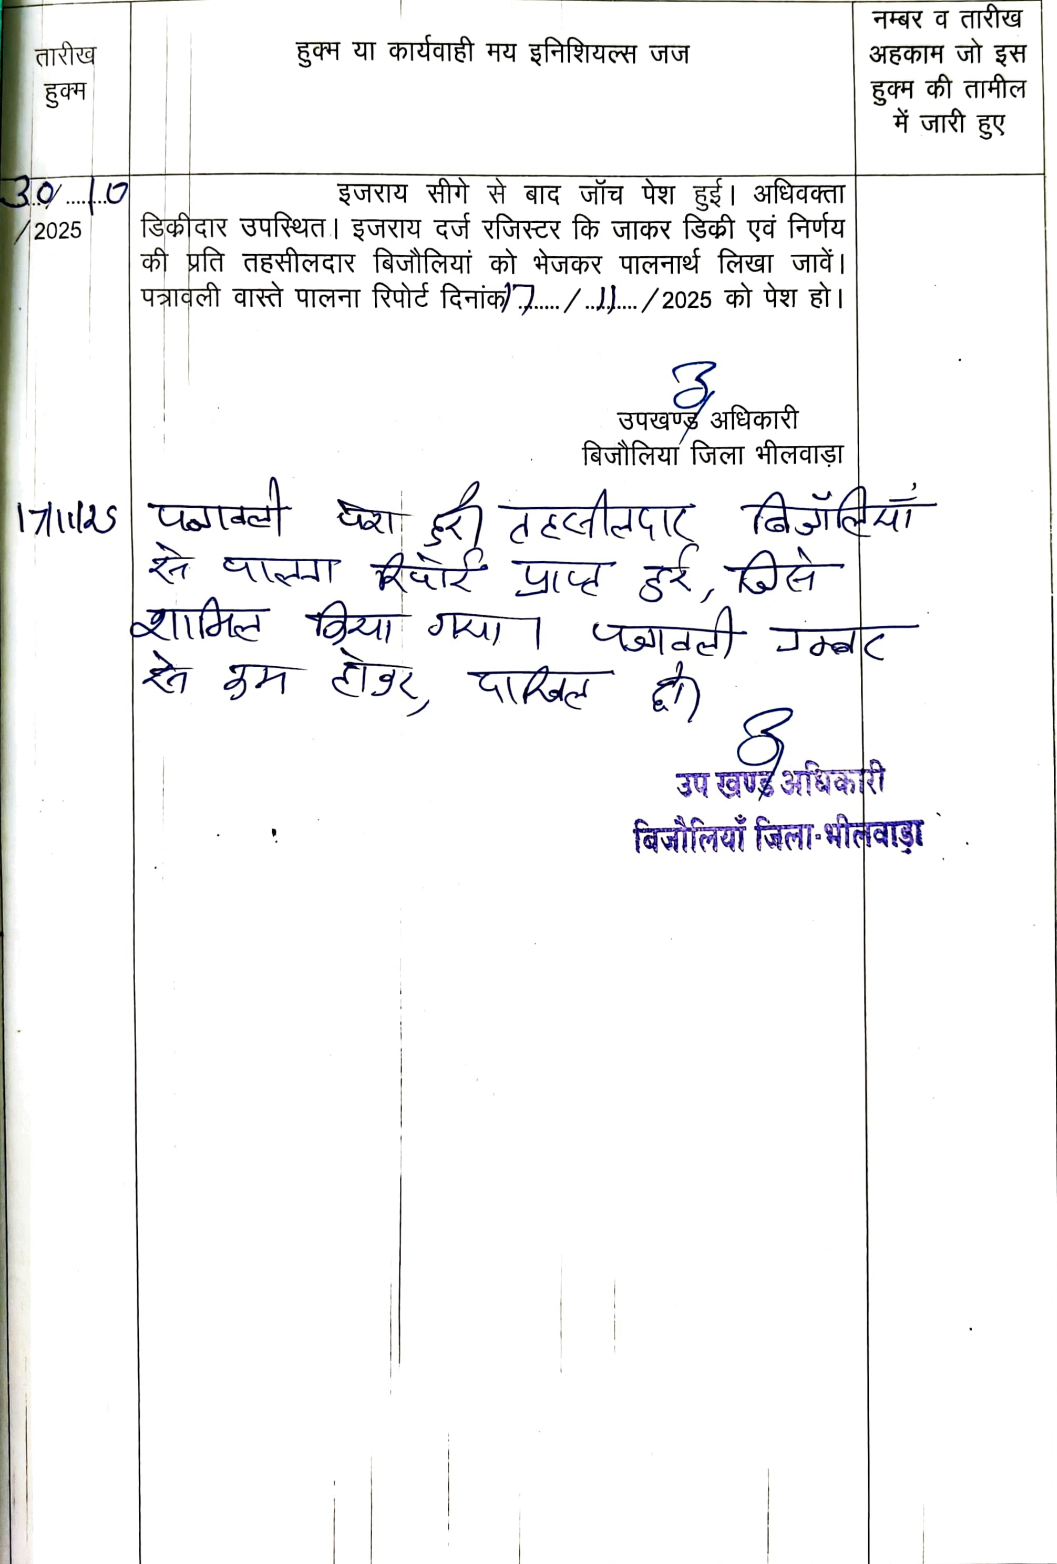 तारीख
हुक्म
हुक्म या कार्यवाही मय इनिशियल्स जज
नम्बर व तारीख
अहकाम जो इस
हुक्म की तामील
में जारी हुए
30/10
/2025
इजराय सीगे से बाद जॉच पेश हुई। अधिवक्ता
डिकीदार उपस्थित। इजराय दर्ज रजिस्टर कि जाकर डिकी एवं निर्णय
की प्रति तहसीलदार बिजौलियां को भेजकर पालनार्थ लिखा जावें।
पत्रावली वास्ते पालना रिपोर्ट दिनांक 17/11/2025 को पेश हो।
उपखण्ड अधिकारी
बिजौलियां जिला भीलवाड़ा
17/11/25
पत्रावली पेश हुई। तहसीलदार बिजौलियाँ
से पालना रिपोर्ट प्राप्त हुई, जिसे
शामिल किया गया। पत्रावली नम्बर
से कम होकर, दाखिल हो।
उप खण्ड अधिकारी
बिजौलियाँ जिला-भीलवाड़ा